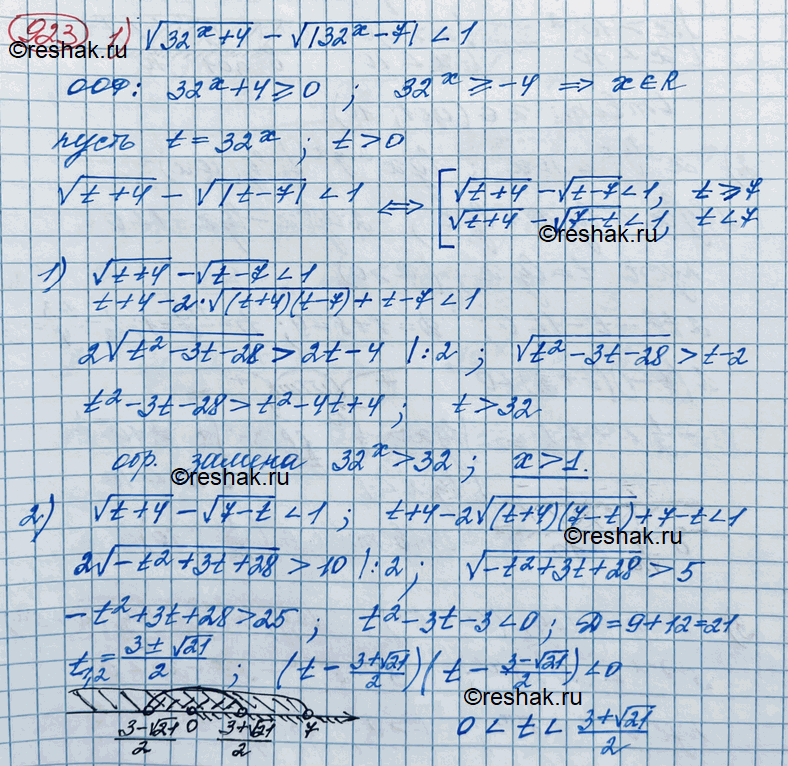 923 1) √(32^x+4) - √|32^x-7| < 1
©reshak.ru ©reshak.ru
ООФ: 32^x+4 ≥ 0 ; 32^x ≥ -4 ⇒ x∈R
пусть t = 32^x ; t > 0
√(t+4) - √|t-7| < 1 ⟺ [ √(t+4) - √(t-7) < 1, t ≥ 7
√(t+4) - √(7-t) < 1, t < 7
©reshak.ru
1) √(t+4) - √(t-7) < 1
t+4-2·√((t+4)(t-7)) + t-7 < 1
2√(t²-3t-28) > 2t-4 |:2 ; √(t²-3t-28) > t-2
t²-3t-28 > t²-4t+4 ; t > 32
обр. замена 32^x > 32 ; x > 1.
©reshak.ru
2) √(t+4) - √(7-t) < 1 ; t+4-2√((t+4)(7-t)) + 7-t < 1
©reshak.ru
2√(-t²+3t+28) > 10 |:2 ; √(-t²+3t+28) > 5
-t²+3t+28 > 25 ; t²-3t-3 < 0 ; D = 9+12 = 21
t₁,₂ = (3±√21)/2 ; (t - (3+√21)/2)(t - (3-√21)/2) < 0
©reshak.ru
(3-√21)/2 0 (3+√21)/2 7
0 < t < (3+√21)/2